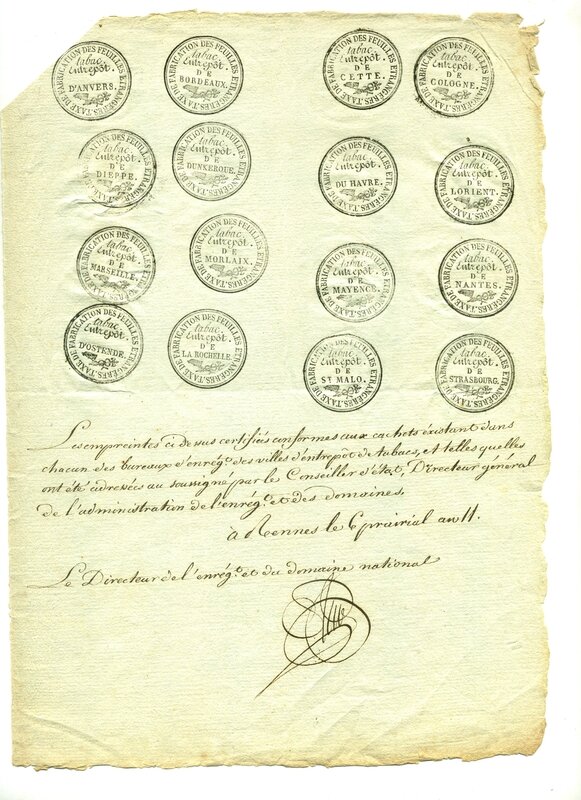 TAXE DE FABRICATION DES FEUILLES ETRANGERES.
tabac
Entrepôt.
D'ANVERS.
TAXE DE FABRICATION DES FEUILLES ETRANGERES.
tabac
Entrepôt.
DE
BORDEAUX.
TAXE DE FABRICATION DES FEUILLES ETRANGERES.
tabac
Entrepôt.
DE
CETTE.
TAXE DE FABRICATION DES FEUILLES ETRANGERES.
tabac
Entrepôt.
DE
COLOGNE.
TAXE DE FABRICATION DES FEUILLES ETRANGERES.
tabac
Entrepôt.
DE
DIEPPE.
TAXE DE FABRICATION DES FEUILLES ETRANGERES.
tabac
Entrepôt.
DE
DUNKERQUE.
TAXE DE FABRICATION DES FEUILLES ETRANGERES.
tabac
Entrepôt.
DU HAVRE.
TAXE DE FABRICATION DES FEUILLES ETRANGERES.
tabac
Entrepôt.
DE
LORIENT.
TAXE DE FABRICATION DES FEUILLES ETRANGERES.
tabac
Entrepôt.
DE
MARSEILLE.
TAXE DE FABRICATION DES FEUILLES ETRANGERES.
tabac
Entrepôt.
DE
MORLAIX.
TAXE DE FABRICATION DES FEUILLES ETRANGERES.
tabac
Entrepôt.
DE
MAYENCE.
TAXE DE FABRICATION DES FEUILLES ETRANGERES.
tabac
Entrepôt.
DE
NANTES.
TAXE DE FABRICATION DES FEUILLES ETRANGERES.
tabac
Entrepôt.
D'OSTENDE.
TAXE DE FABRICATION DES FEUILLES ETRANGERES.
tabac
Entrepôt.
DE
LA ROCHELLE.
TAXE DE FABRICATION DES FEUILLES ETRANGERES.
tabac
Entrepôt.
DE
St MALO.
TAXE DE FABRICATION DES FEUILLES ETRANGERES.
tabac
Entrepôt.
DE
STRASBOURG.
Les empreintes ci dessus certifiés conformes aux cachets existant dans
chacun des bureaux d'enregt. des villes d'entrepôt de tabacs, et telles quelles
ont été adressées au soussigné par le Conseiller d'état, Directeur général
de l'administration de l'enregt. et des domaines.
à Rennes le 6 prairial an 11.
Le Directeur de l'enregt. et du domaine national